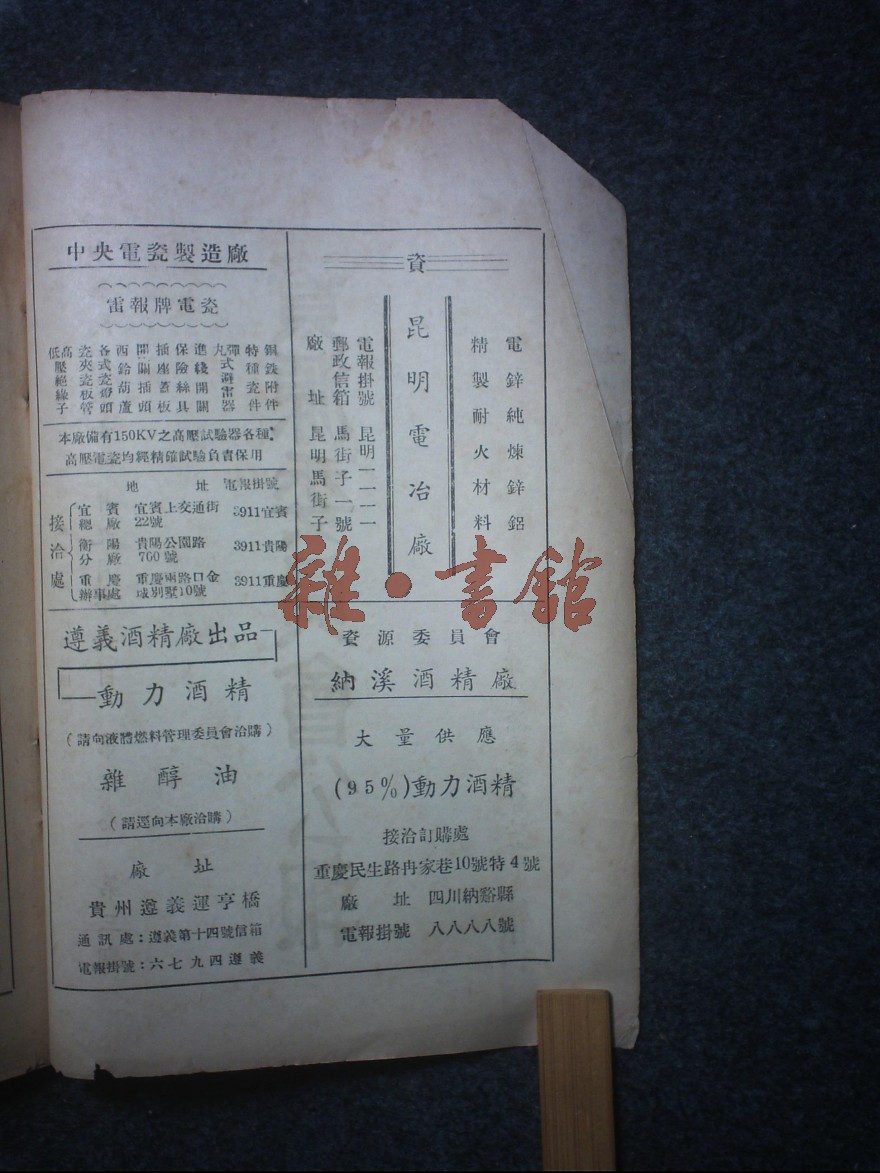 資
電鋅純煉鋅鋁
精製耐火材料
昆明電冶廠
電報掛號 昆明一一一一
郵政信箱 馬街子一號
廠址 昆明馬街子
中央電瓷製造廠
雷報牌電瓷
鋼鉄附件
特種瓷件
彈式避雷器
丸
進綫開關
保險絲具
插座蓋板
開關插頭
西鈴葫蘆
各式瓷帶頭
瓷夾瓷板管
高低壓絕緣子
本廠備有150KV之高壓試驗器各種
高壓電瓷均經精確試驗負責保用
接洽處
地址 電報掛號
宜賓總廠 宜賓上交通街22號 3911宜賓
衡陽分廠 貴陽公園路760號 3911貴陽
重慶辦事處 重慶兩路口金城別墅10號 3911重慶
資源委員會
納溪酒精廠
大量供應
(95%)動力酒精
接洽訂購處
重慶民生路冉家巷10號特4號
廠址 四川納谿縣
電報掛號 八八八八號
遵義酒精廠出品
動力酒精
(請向液體燃料管理委員會洽購)
雜醇油
(請逕向本廠洽購)
廠址
貴州遵義運亨橋
通訊處:遵義第十四號信箱
電報掛號:六七九四遵義
雜·書館